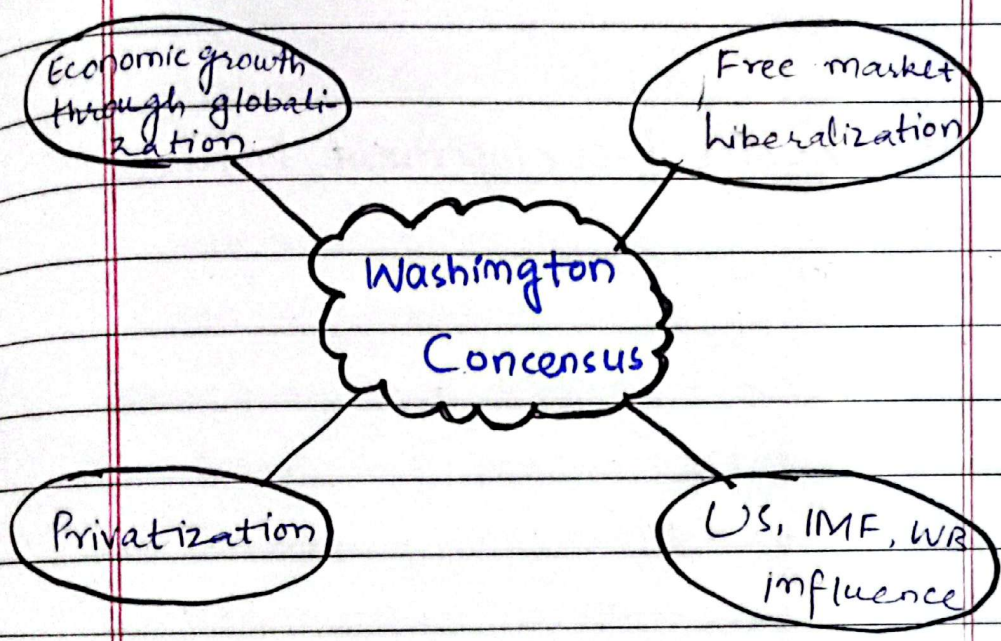 Economic growth
through globali-
zation.
Free market
Liberalization
Washington
Concensus
Privatization
US, IMF, WB
influence